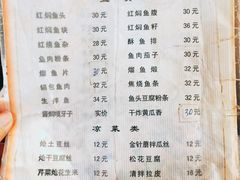 红焖鱼头 30元 红焖鱼腹 30元
红焖鱼块 30元 红焖鱼籽 30元
红烧鱼杂 30元 酥鱼排 30元
鱼肉粉条 30元 鱼肉茄子 30元
熘鱼片 30元 熘鱼焦 30元
锅包鱼肉 30元 焦烧鱼条 30元
生拌鱼 30元 鱼头豆腐粉条 32元
实价 干炸黄瓜香 30元
凉菜类
炝土豆丝 12元 金针蘑拌瓜丝 12元
炝干豆腐丝 12元 松花豆腐 12元
芹菜炝花生米 12元 清拌拉皮 16元